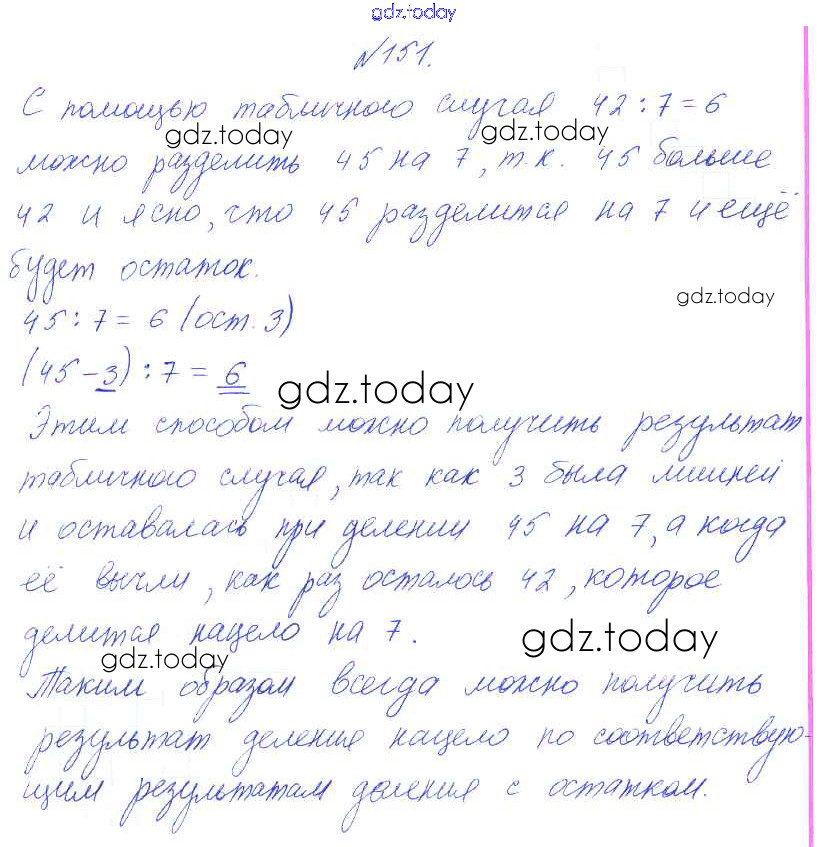 gdz.today
№151.
С помощью табличного случая 42 : 7 = 6
gdz.today gdz.today
можно разделить 45 на 7, т.к. 45 больше
42 и ясно, что 45 разделится на 7 и ещё
будет остаток.
gdz.today
45 : 7 = 6 (ост. 3)
(45 - 3) : 7 = 6
gdz.today
Этим способом можно получить результат
табличного случая, так как 3 была лишней
и оставалась при делении 45 на 7, а когда
её вычли, как раз осталось 42, которое
делится нацело на 7.
gdz.today
gdz.today
Таким образом всегда можно получить
результат деления нацело по соответствую-
щим результатам деления с остатком.